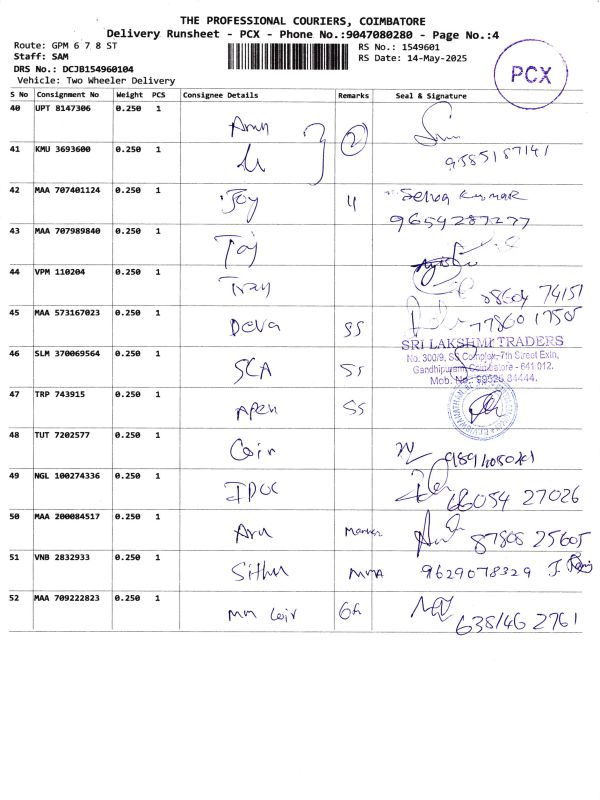 THE PROFESSIONAL COURIERS, COIMBATORE
Delivery Runsheet - PCX - Phone No.:9047080280 - Page No.:4
Route: GPM 6 7 8 ST
RS No.: 1549601
Staff: SAM
RS Date: 14-May-2025
DRS No.: DCJB154960104
Vehicle: Two Wheeler Delivery
PCX
S No Consignment No Weight PCS Consignee Details Remarks Seal & Signature
40 UPT 8147306 0.250 1 Arun 2
9585187141
41 KMU 3693600 0.250 1
42 MAA 707401124 0.250 1 Joy 4 Selva Kumar
9659287277
43 MAA 707989840 0.250 1 Taj
44 VPM 110204 0.250 1 74151
45 MAA 573167023 0.250 1 Deva SS 77860 17505
SRI LAKSHMI TRADERS
No. 300/9, SS Complex, 7th Street Extn,
Gandhipuram, Coimbatore - 641 012.
46 SLM 370069564 0.250 1 SCA SS
Mob. No.: 99526 84444.
47 TRP 743915 0.250 1 Apen SS
48 TUT 7202577 0.250 1 Coir
49 NGL 100274336 0.250 1 IDOC 27026
50 MAA 200084517 0.250 1 Arul 87808 25605
51 VNB 2832933 0.250 1 Sithu 9629078329
52 MAA 709222823 0.250 1 MM Coir 638146 2761